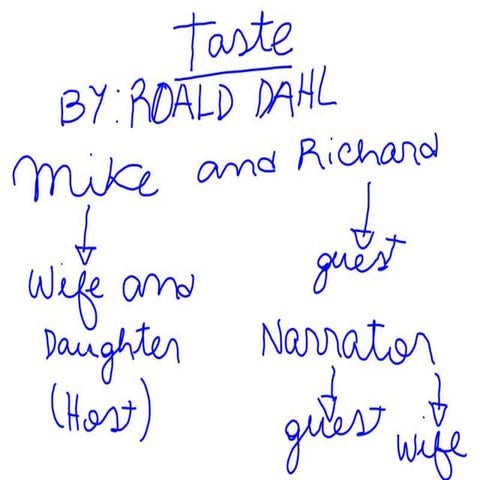 Taste
BY: ROALD DAHL
Mike and Richard
Wife and
Daughter
(Host)
guest
Narrator
guest wife